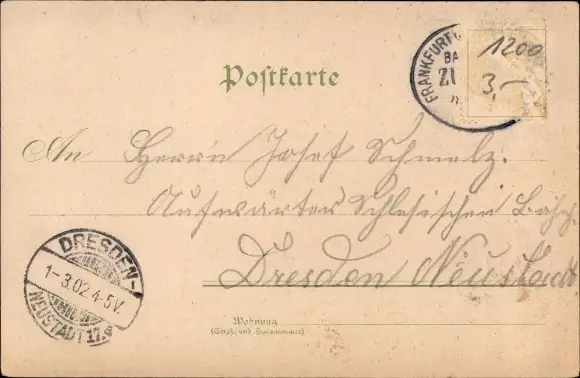 FRANKFURT
BA
ZU
1200
3,-
Postkarte
An Herrn Josef Schmelz.
Aufwärter Schlesischen Bahh.
Dresden Neustadt
DRESDEN-
1-3.02.4-5V.
NEUSTADT 17.
Wohnung
(Straße und Hausnummer)